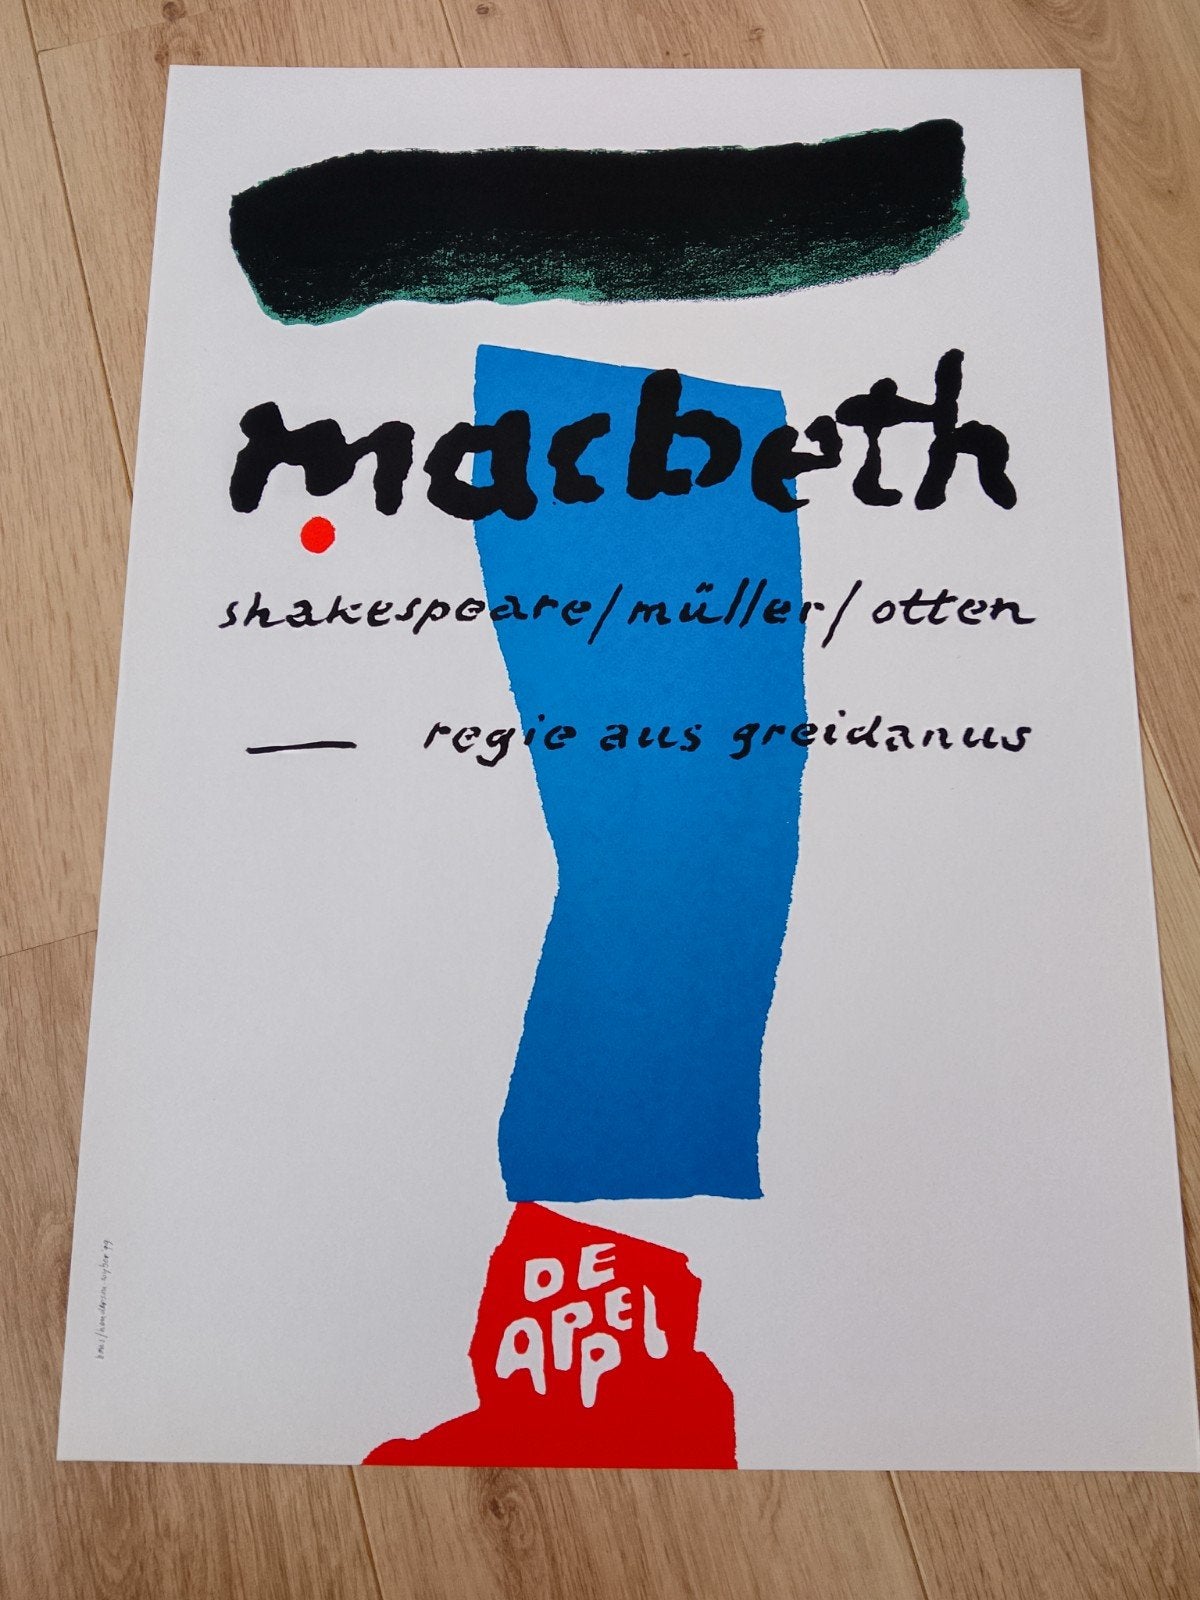 macbeth
shakespeare/müller/otten
— regie aus greidanus
DE
APPEL